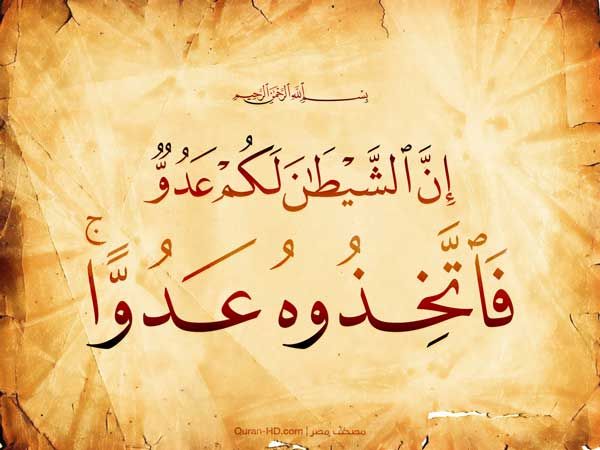 بِسْمِ ٱللَّهِ ٱلرَّحْمَٰنِ ٱلرَّحِيمِ
إِنَّ ٱلشَّيْطَٰنَ لَكُمْ عَدُوٌّ
فَٱتَّخِذُوهُ عَدُوًّا ۚ
Quran-HD.com | مصحف مصر